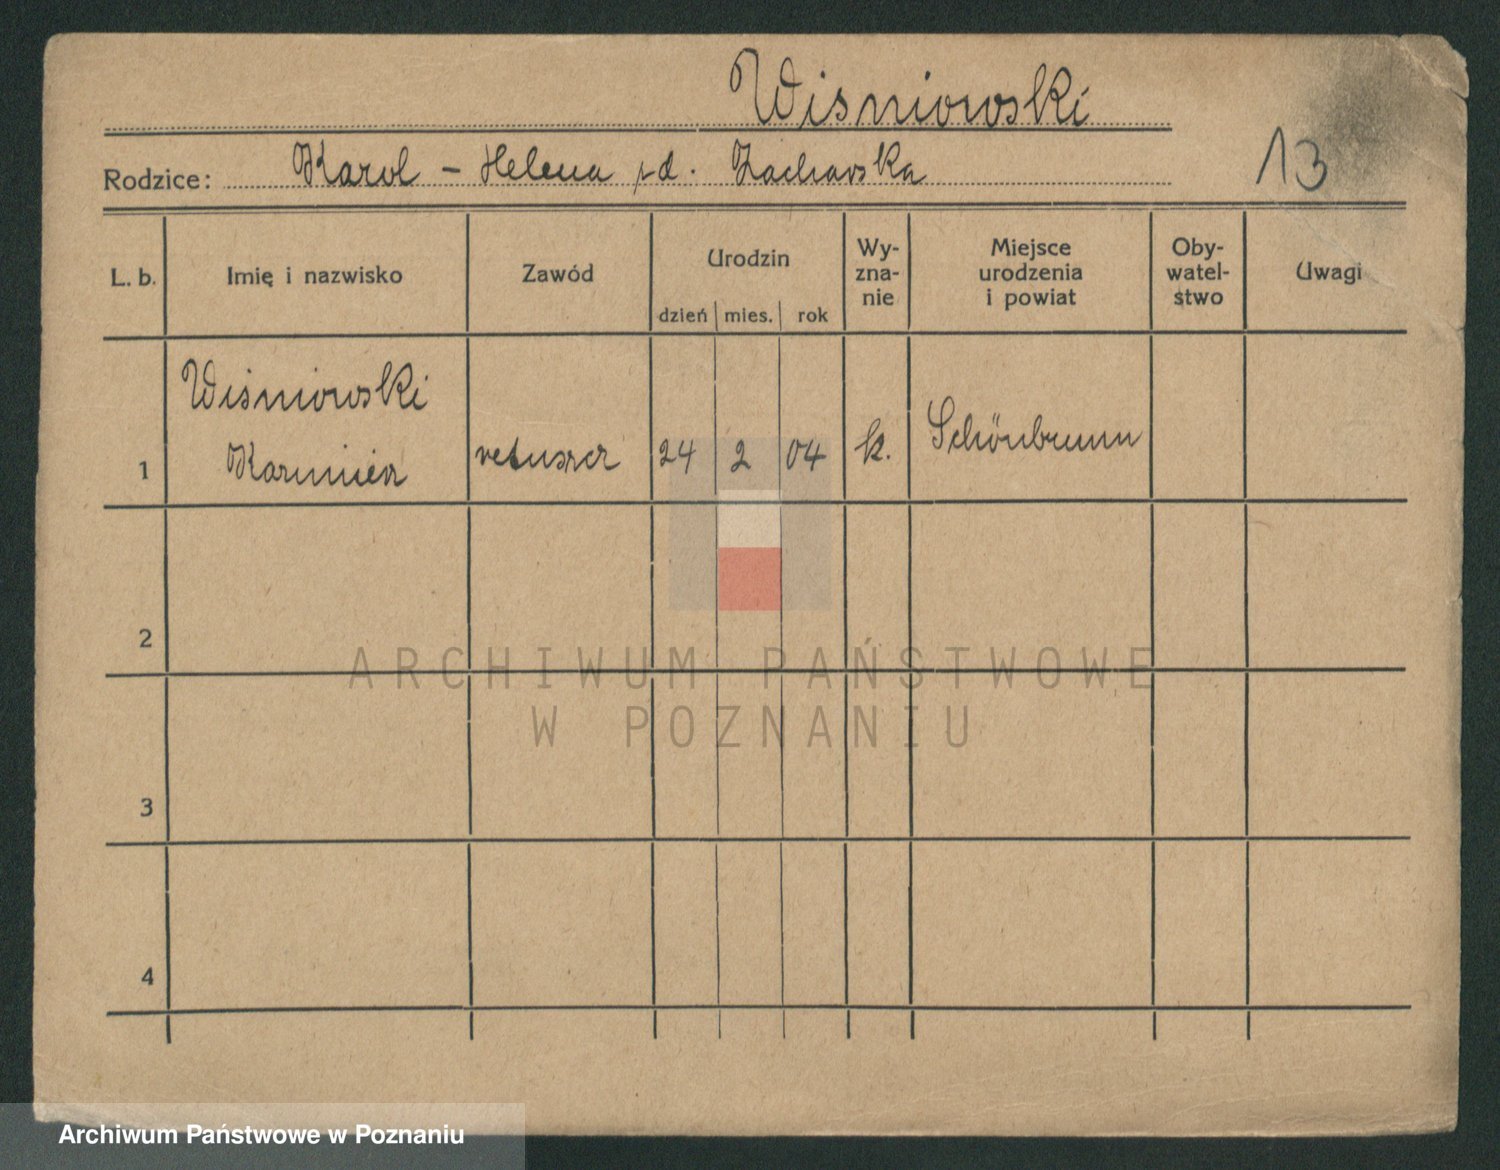 Wiśniowski
Rodzice: Karol - Helena zd. Zacharska
13
L. b. Imię i nazwisko Zawód Urodzin dzień mies. rok Wy-zna-nie Miejsce urodzenia i powiat Oby-watel-stwo Uwagi
Wiśniowski
1 Kazimierz retuszer 24 2 04 k. Schönbrunn
2
3
4
ARCHIWUM PAŃSTWOWE
W POZNANIU
Archiwum Państwowe w Poznaniu